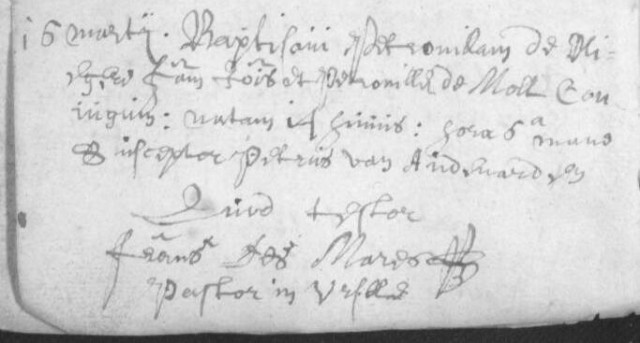 16 martij. Baptisavi Petronillam de Vli-
fiam Jois et Petronillae de Moll Con
iugum: natam 14 huius: hora 6a mane
Susceptor Petrus van Audenarden
Quod testor
Frans Des Mares
Pastor in Urssele